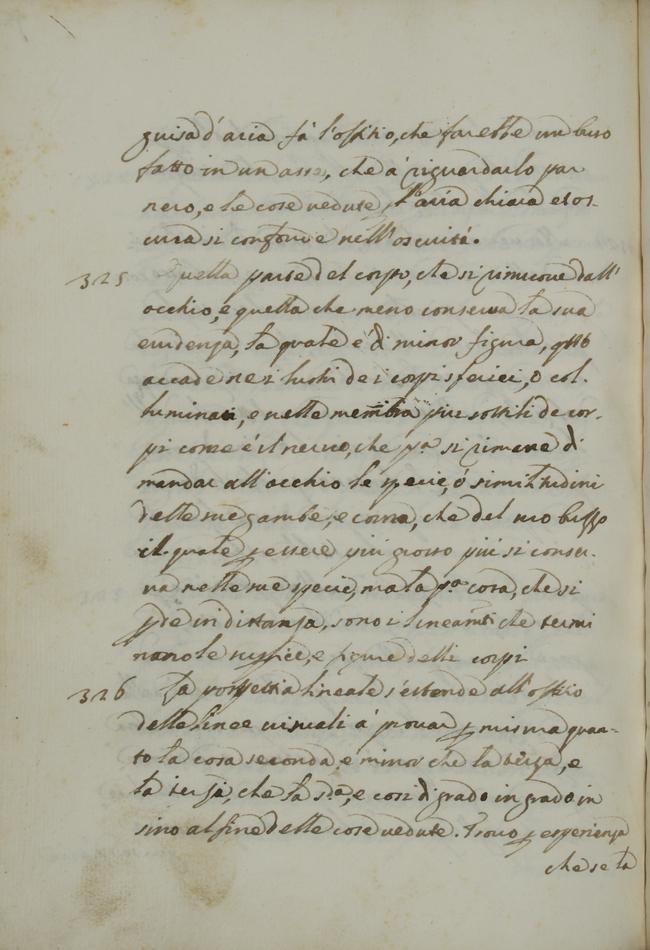 guisa d'aria fà l'offitio, che farebbe un buso
fatto in un asse, che à riguardarlo par
nero, e le cose vedute p l'aria chiara et os-
cura si confonde nell'oscurità.
325 Quella parte del corpo, che si rimuove dall'
occhio, e quella che meno conserva la sua
evidenza, la quale è di minor figura, qsto
accade nesi lustri de i corpi sferici, ò col-
luminati, e nelle membra piu sottili de cor-
pi come è il nervo, che pa si rimane di
mandar all'occhio le specie, ò similitudini
delle sue gambe, e corna, che del suo busto
il quale p essere più grosso più si conser-
va nelle sue specie, ma la pa cosa, che si
pde in distanza, sono i lineamti che termi
nano le suffitie, e figure delli corpi
326 La prospettia lineale s'estende all'offitio
delle linee visuali à provar p misura quan-
to la cosa seconda, e minor che la terza, e
la terza, che la sda, e cosi di grado in grado in
sino al fine delle cose vedute. Trovo p esperienza
che se la